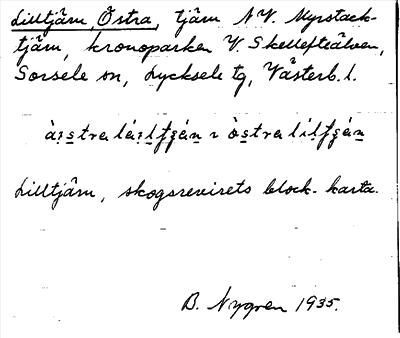 Lilltjärn, Östra, tjärn N.V. Myrstack-
tjärn, kronoparken V. Skellefteälven,
Sorsele sn, Lycksele tg, Västerb. l.
Lilltjärn, skogsrevirets block-karta.
B. Nygren 1935.